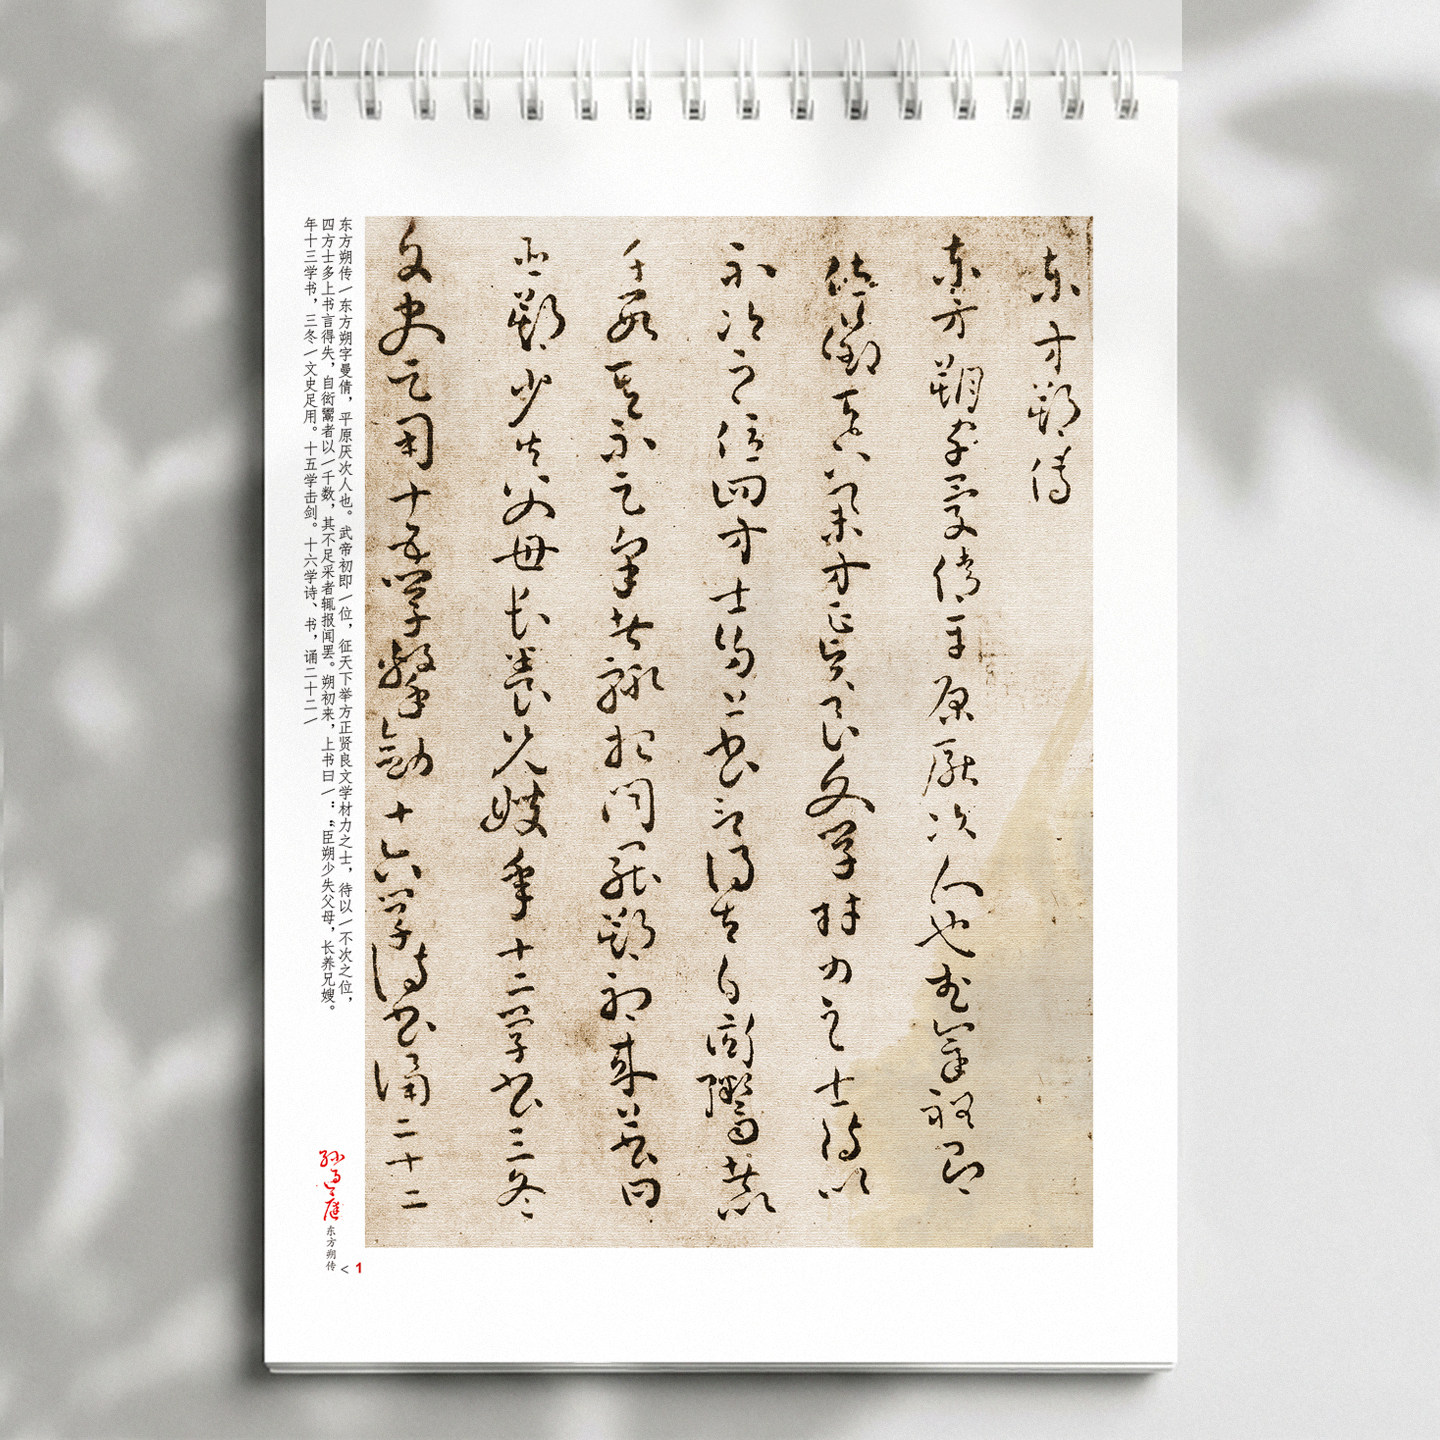 東方朔傳
東方朔字曼倩平原厭次人也武帝初即
位徵天下舉方正賢良文學材力之士待以
不次之位四方士多上書言得失自衒鬻者以
千數其不足采者輒報聞罷朔初來上書曰
臣朔少失父母長養兄嫂年十三學書三冬
文史足用十五學擊劍十六學詩書誦二十二
东方朔传/东方朔字曼倩，平原厌次人也。武帝初即/位，征天下举方正贤良文学材力之士，待以/不次之位，
四方士多上书言得失，自衒鬻者以/千数，其不足采者辄报闻罢。朔初来，上书曰/：“臣朔少失父母，长养兄嫂。
年十三学书，三冬/文史足用。十五学击剑。十六学诗、书，诵二十二/
孙过庭
东方朔传 < 1